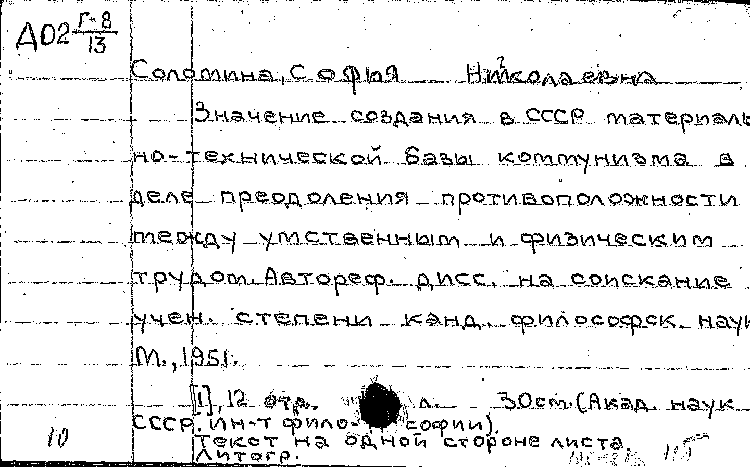 Д02 Г-8/13
Соломина, София Николаевна
Значение создания в СССР материаль
но-технической базы коммунизма в
деле преодоления противоположности
между умственным и физическим
трудом. Автореф. дисс. на соискание
учен. степени канд. философск. наук
М., 1951.
[1], 12 отр. л. 30см. (Акад. наук
СССР. Ин-т фило- софии).
Текст на одной стороне листа.
Литогр.
10